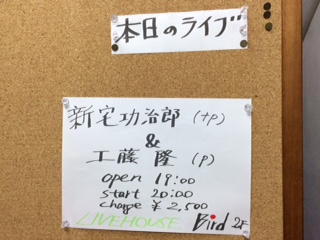 本日のライブ
新宅功治郎 (tp)
&
工藤 隆 (p)
open 19:00
start 20:00
charge ¥2,500
LIVEHOUSE Bird 2F